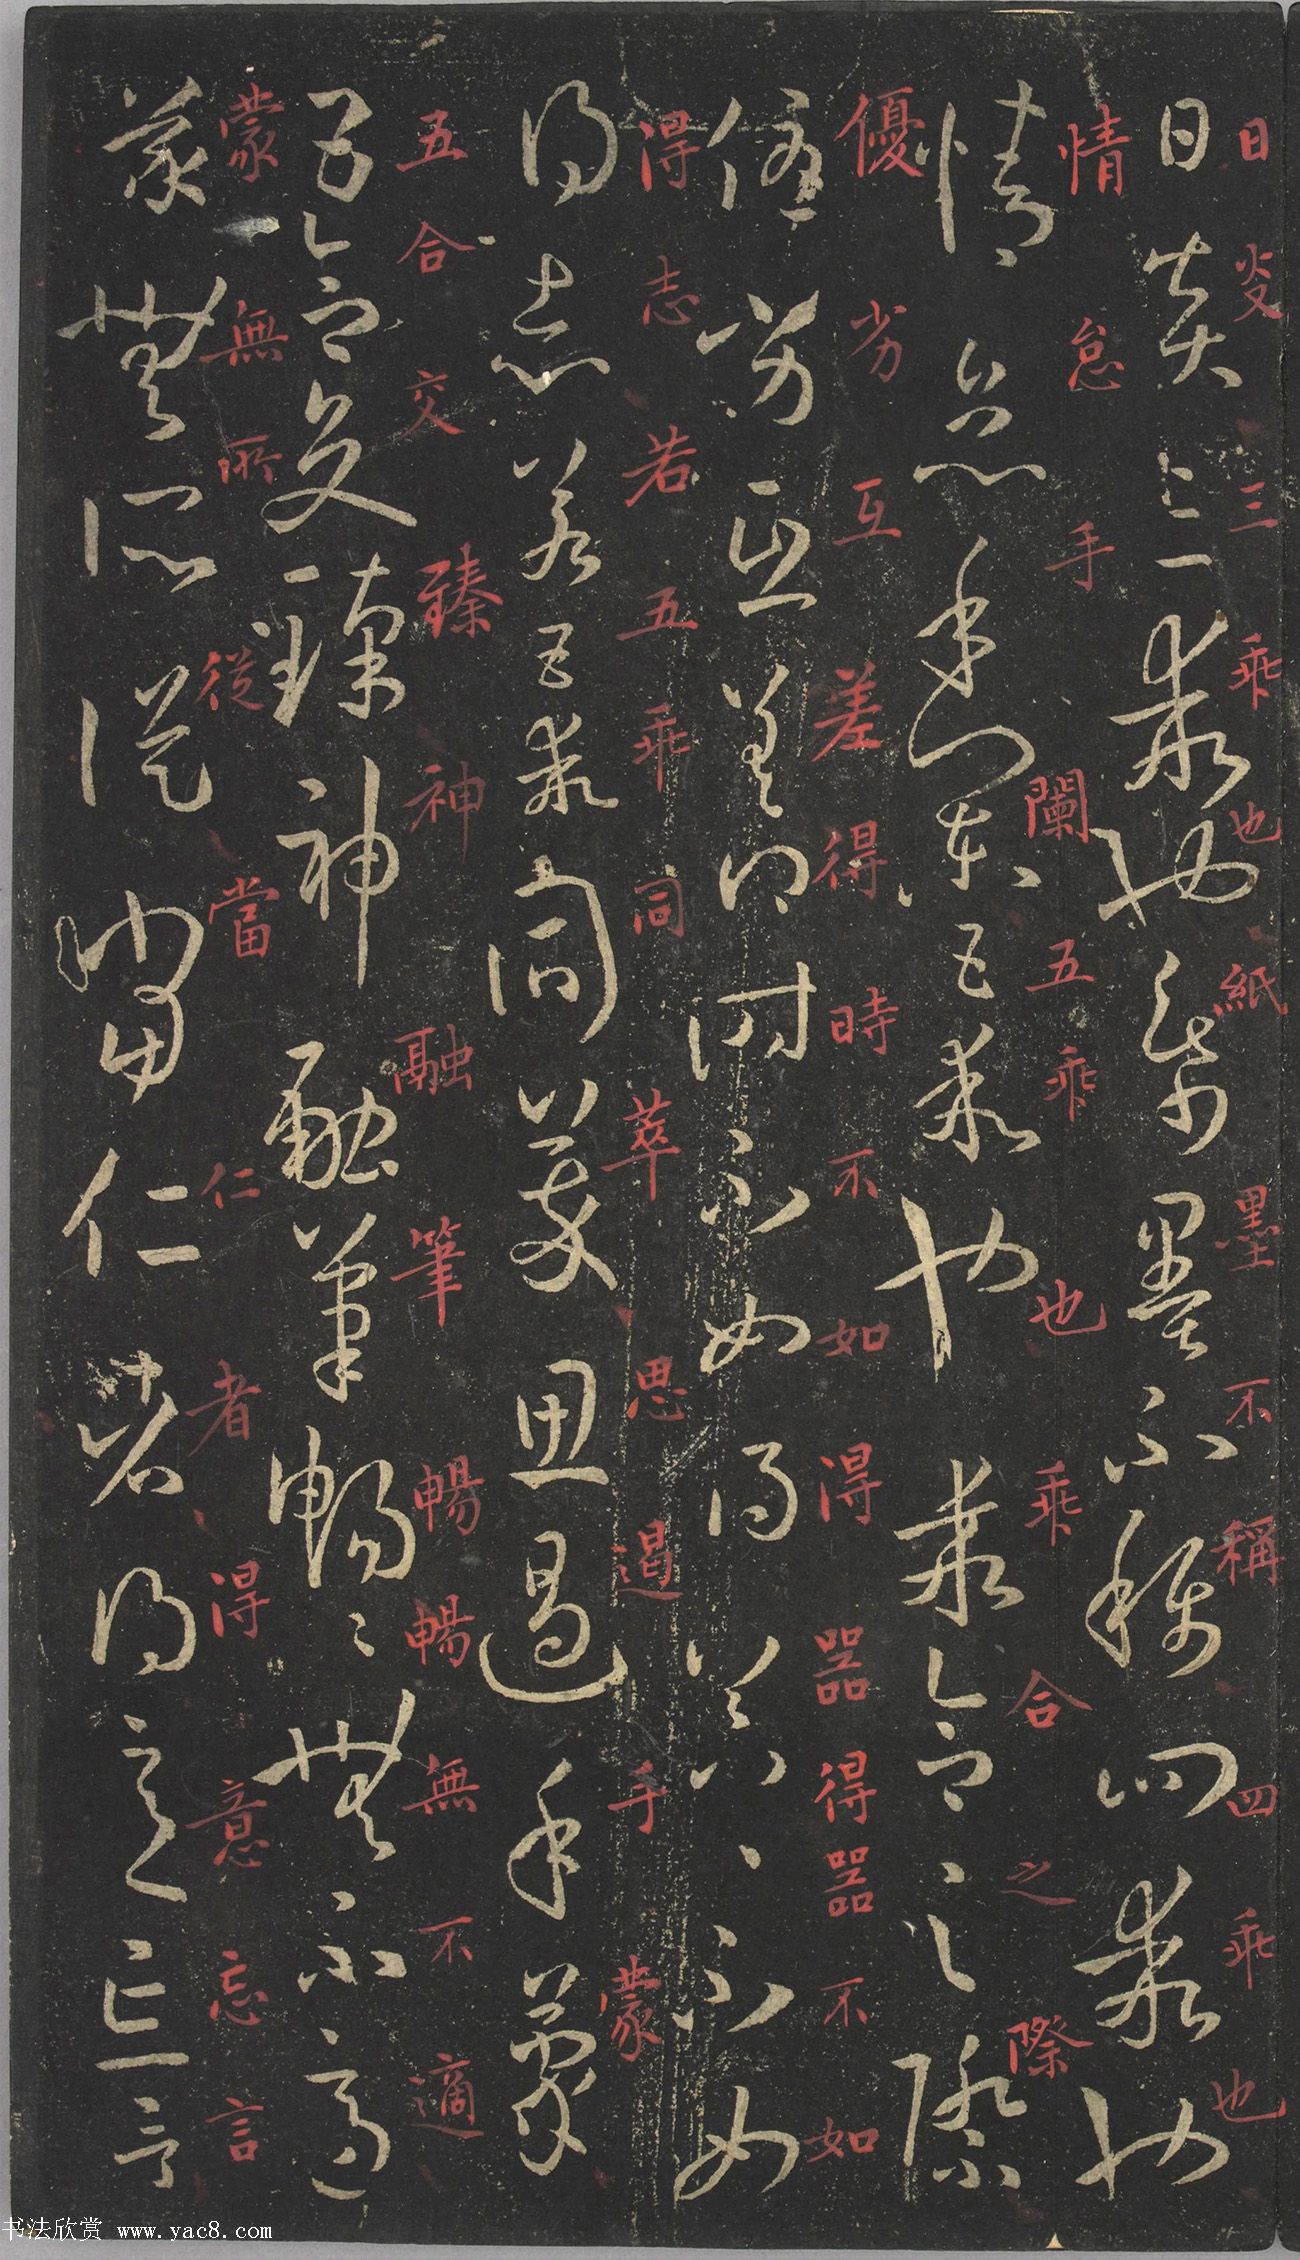 日炎三乖也紙墨不稱四乖也
日炎三乖也紙墨不稱四乖也
情怠手闌五乖也乖合之際
情怠手闌五乖也乖合之際
優劣互差得時不如得器得器不如
優劣互差得時不如得器〻不如
得志若五乖同萃思遏手蒙
得志若五乖同萃思遏手蒙
五合交臻神融筆暢暢無不適
五合交臻神融筆暢〻無不適
蒙無所從當仁者得意忘言
蒙無所從當仁者得意忘言
书法欣赏 www.yac8.com